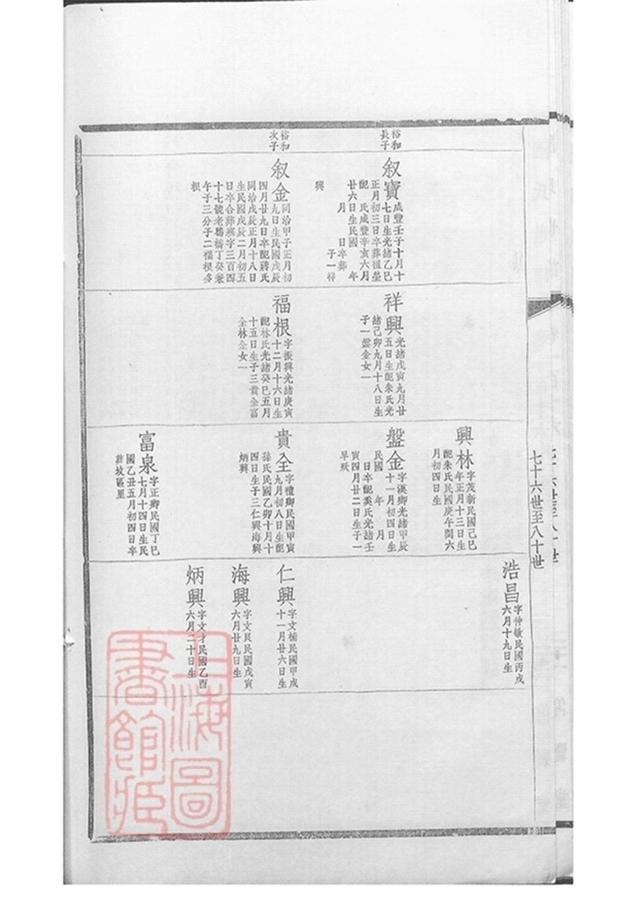 七十六世至八十世
裕和
長子
叙寶
咸豐壬子十月十
七日生光緒乙巳
正月初三日卒葬祖塋
配 氏咸豐辛亥六月
廿六日生民國 年
月 日卒葬
子一祥
興
裕和
次子
叙金
同治甲子正月初
九日生民國戊辰
四月廿九日卒配蔣氏
同治戊辰正月十八日
生民國戊辰二月初五
日卒合葬 字三百四
十七號老 橋丁癸兼
午子三分子二福根多
根
祥興
光緒戊寅九月廿
五日生配朱氏光
緒己卯九月十八日生
子一盤金女一
福根
字振興光緒庚寅
十二月十六日生
配林氏光緒癸巳五月
十五日生子三貴全富
全林全女一
興林
字茂新民國己巳
年正月十三日生
配朱氏民國庚午閏六
月初四日生
盤金
字漢卿光緒甲辰
十一月初四日生
民國 年 月
日卒配奚氏光緒壬
寅四月廿二日生子一
早殀
貴全
字禮卿民國甲寅
九月初八日生配
孫氏民國乙卯十月十
四日生子三仁興海興
炳興
富泉
字正卿民國丁巳
七月十四日生民
國乙丑五月初四日卒
葬坡區里
浩昌
字仲敏民國丙戌
六月十九日生
仁興
字文楠民國甲戌
十一月廿六日生
海興
字文良民國戊寅
六月廿九日生
炳興
字文才民國乙酉
六月二十日生
上海圖
書館藏